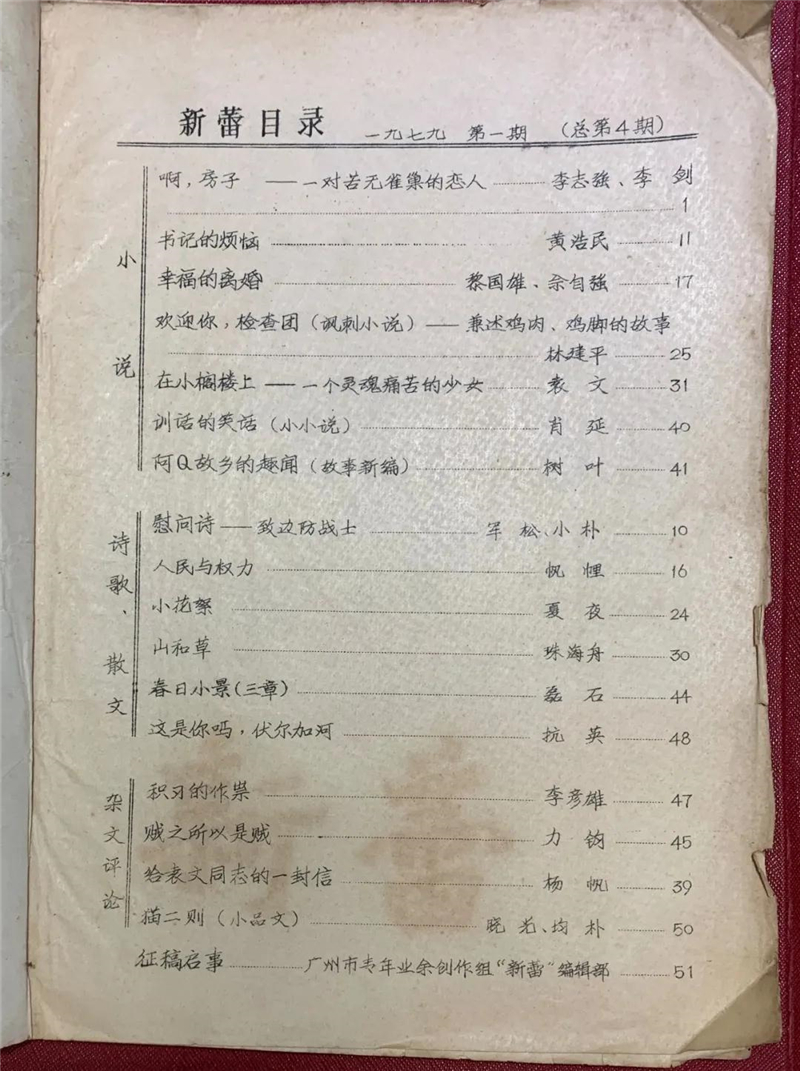 新蕾目录 一九七九 第一期 (总第4期)
小说
啊,房子 ——一对苦无雀巢的恋人 李志强、李 剑
1
书记的烦恼 黄浩民 11
幸福的离婚 黎国雄、余自强 17
欢迎你,检查团(讽刺小说)——兼述鸡肉、鸡脚的故事
林建平 25
在小阁楼上——一个灵魂痛苦的少女 袁 文 31
训话的笑话(小小说) 肖 延 40
阿Q故乡的趣闻(故事新编) 树 叶 41
诗歌、散文
慰问诗——致边防战士 军 松、小 朴 10
人民与权力 帆 狸 16
小花絮 夏 夜 24
山和草 珠海舟 30
春日小景(三章) 磊 石 44
这是你吗,伏尔加河 抗 英 48
杂文评论
积习的作祟 李彦雄 47
贼之所以是贼 力 钧 45
给袁文同志的一封信 杨 帆 39
猫二则(小品文) 晓光、均 朴 50
征稿启事 广州市青年业余创作组“新蕾”编辑部 51